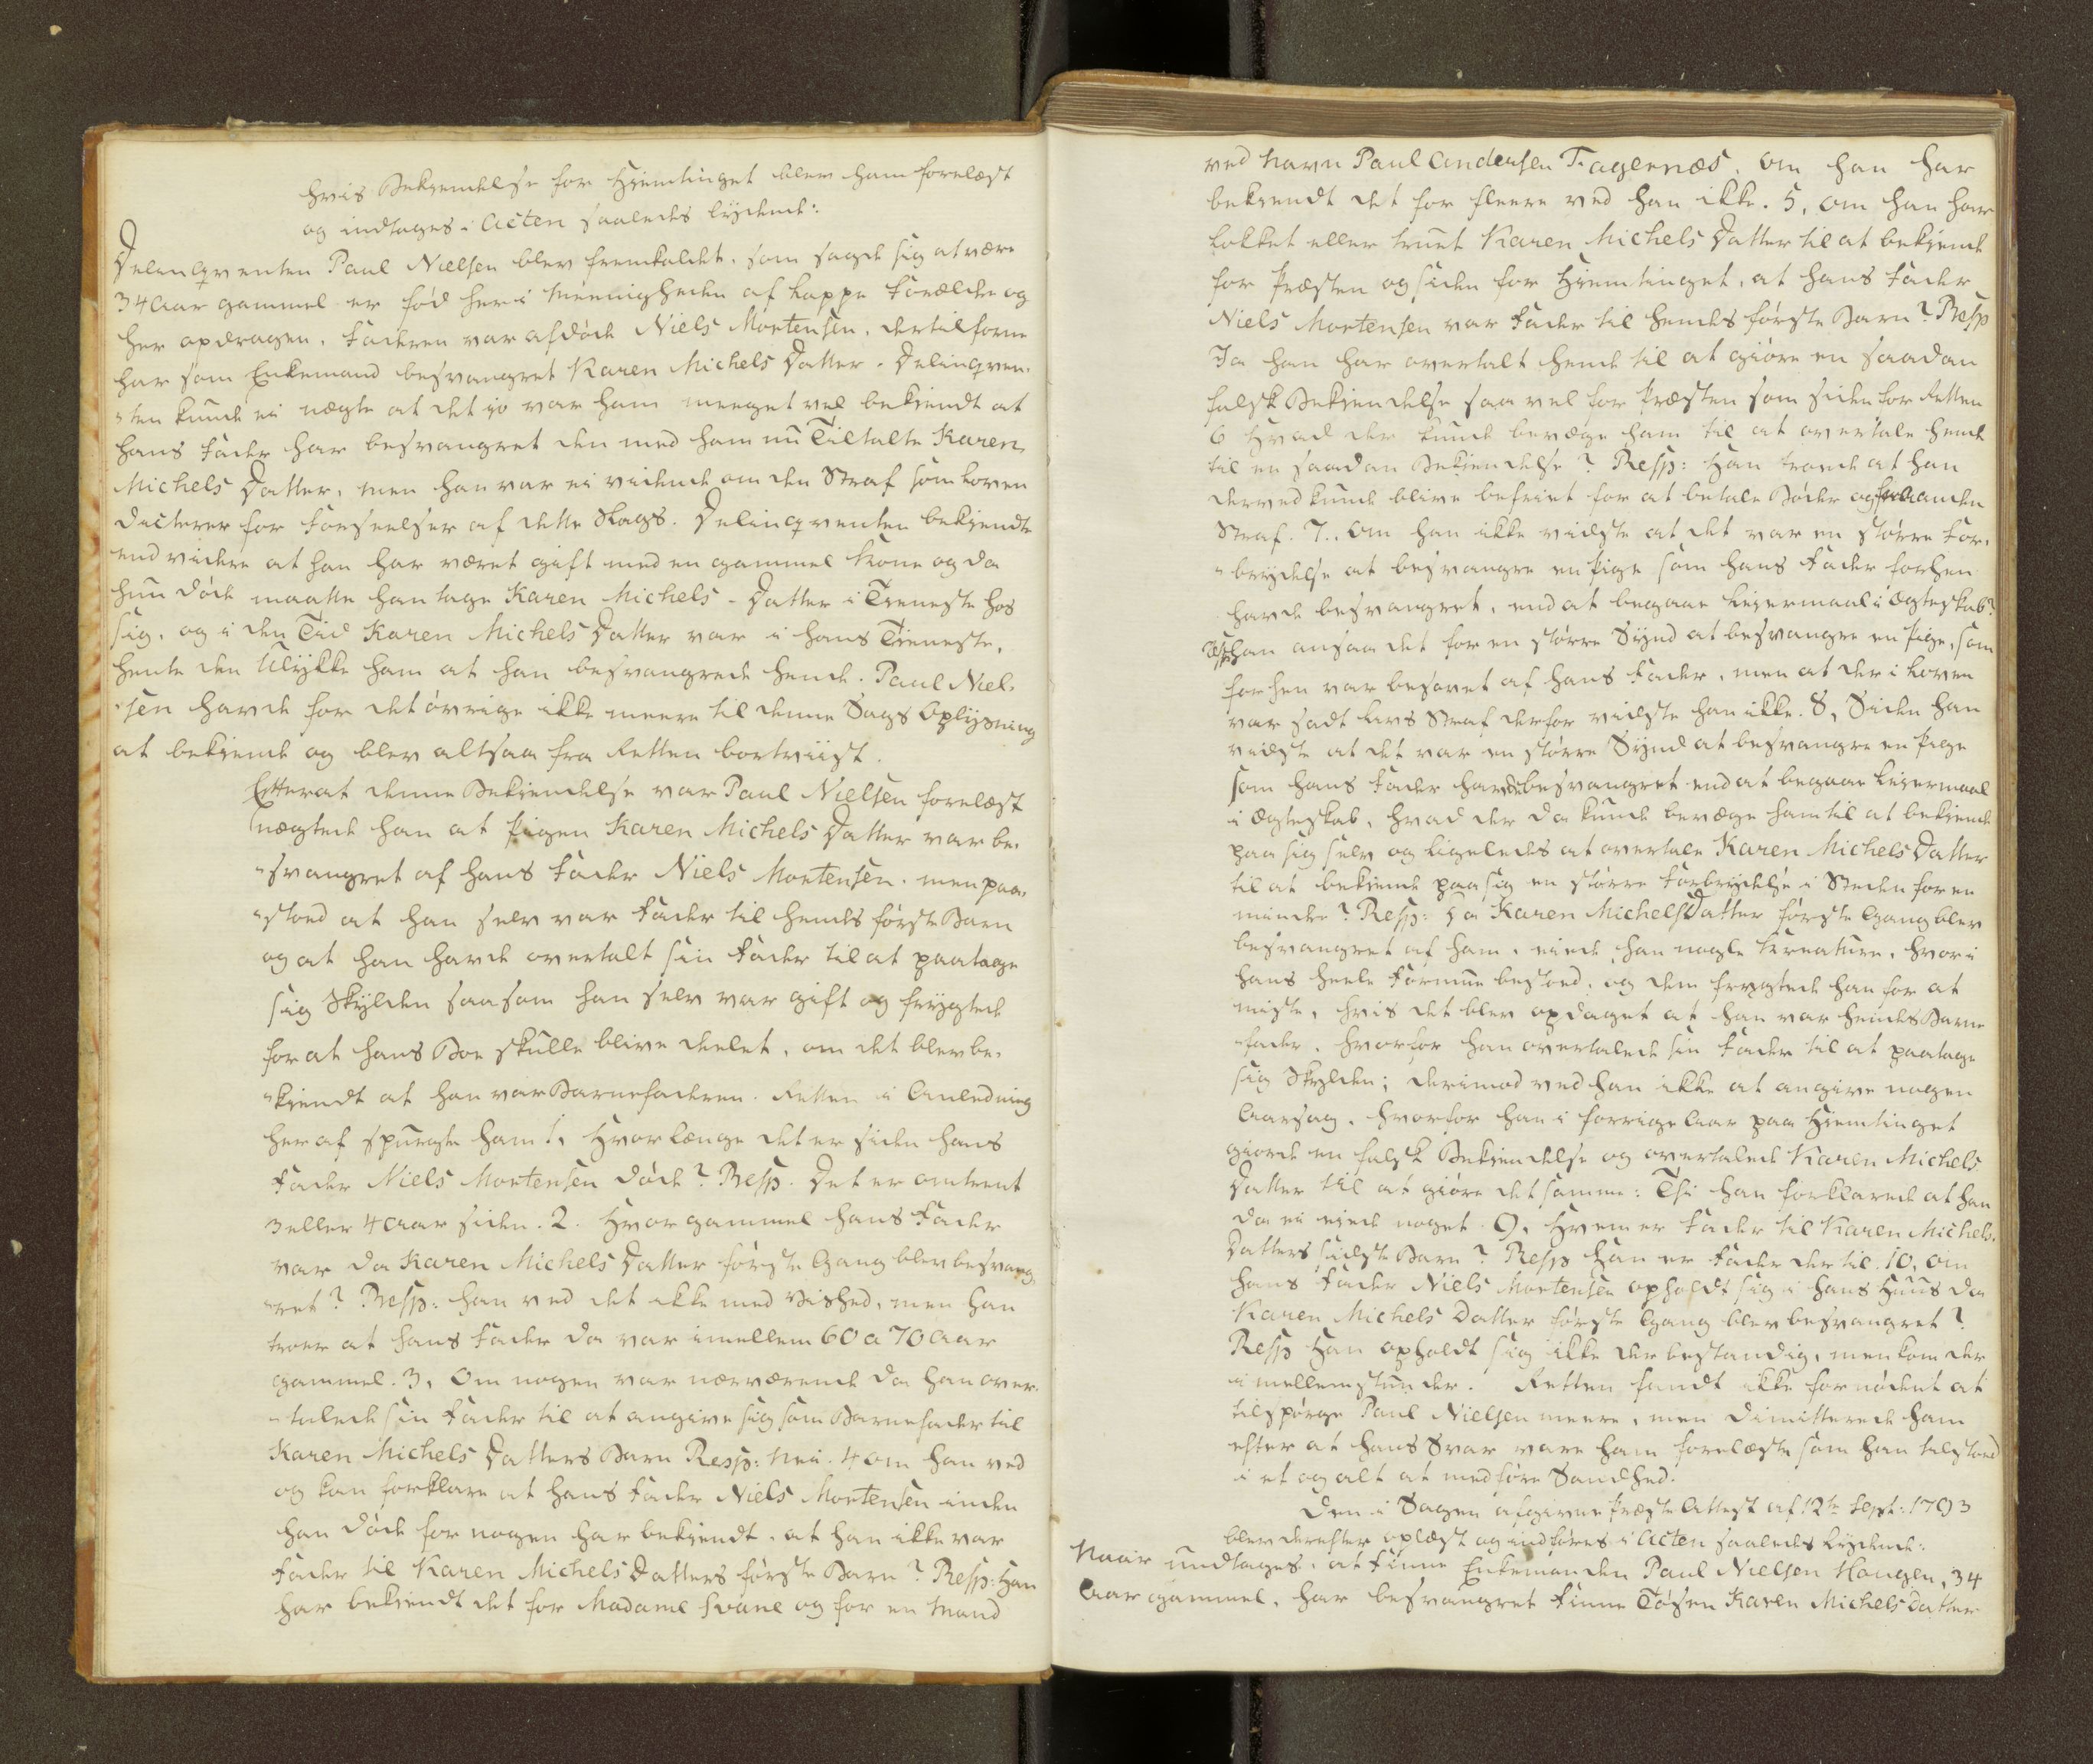 hvis Bekiendelse for Hiemtinget blev ham forelæst
og indtages i Acten saaledes lydende:
Delenqventen Paul Nielsen blev fremkaldet, som sagde sig at være
34 Aar gammel er fød her i Meenigheden af Lappe Forældre og
her opdragen. Faderen var afdøde Niels Mortensen, der tilforne
har som Enkemand besvangret Karen Michels Datter. Delinqven-
"ten kunde ei nægte at det jo var ham meeget vel bekiendt at
hans Fader har besvangret den med ham nu Tiltalte Karen
Michels Datter, men han var ei vidende om den Straf som Loven
dicterer for Forseelser af dette Slags. Delinqventen bekiendte
end videre at han har været gift med en gammel Kone og da
hun døde maatte han tage Karen Michels-Datter i Tieneste hos
sig, og i den Tid Karen Michels Datter var i hans Tieneste,
hente den Ulykke ham at han besvangrede hende. Paul Niel-
"sen havde for det øvrige ikke meere til denne Sags Oplysning
at bekiende og blev altsaa fra Retten bortviist.
Efterat denne Bekiendelse var Paul Nielsen forelæst
nægtede han at Pigen Karen Michels Datter var be-
"svangret af hans Fader Niels Mortensen, men paa-
"stoed at han selv var Fader til hendes første Barn
og at han havde overtalt sin Fader til at paatage
sig Skylden saasom han selv var gift og frygtede
for at hans Boe skulle blive deelet, om det blev be-
"kiendt at han var Barnefaderen. Retten i Anledning
heraf spurgte ham 1, Hvor længe det er siden hans
Fader Niels Mortensen døde? Resp. Det er omtrent
3 eller 4 Aar siden. 2. Hvor gammel hans Fader
var da Karen Michels Datter første Gang blev besvang-
"ret? Resp: han ved det ikke med Vished, men han
troer at hans Fader da var imellem 60 a 70 Aar
gammel. 3, Om nogen var nærværende da han over-
"talede sin Fader til at angive sig som Barnefader til
Karen Michels Datters Barn Resp: Nei. 4 om han ved
og kan forklare at hans Fader Niels Mortensen inden
han døde for nogen har bekiendt, at han ikke var
Fader til Karen Michels Datters første Barn? Resp: Han
har bekiendt det for Madame Svane og for en Mand
ved Navn Paul Andersen Fagernæs. Om han har
bekiendt det for fleere ved han ikke. 5, om han har
lokket eller truet Karen Michels Datter til at bekiende
for Præsten og siden for Hiemtinget, at hans Fader
Niels Mortensen var Fader til hendes første Barn? Resp
Ja han har overtalt hende til at giøre en saadan
falsk Bekiendelse saa vel for Præsten som siden for Retten
6 Hvad der kunde bevæge ham til at overtale hende
til en saadan Bekiendelse? Resp: Han troede at han
derved kunde blive befriet for at betale Bøder og for anden
Straf. 7., Om han ikke vidste at det var en større For-
"brydelse at besvangre en Pige som hans Fader forhen
havde besvangret, end at begaae Leiermaal i Ægteskab?
Resp: han ansaa det for en større Synd at besvangre en Pige, som
forhen var besovet af hans Fader, men at der i Loven
var sadt Livs Straf derfor vidste han ikke. 8, Siden han
vidste at det var en større Synd at besvangre en Pige
som hans Fader havde besvangret end at begaae Leiermaal
i Ægteskab, hvad der da kunde bevæge ham til at bekiende
paa sig selv og ligeledes at overtale Karen Michels Datter
til at bekiende paa sig en større Forbrydelse i Steden for en
mindre? Resp: Da Karen Michels Datter første Gang blev
besvangret af ham, eiede han nogle Kreature, hvori
hans heele Formue bestoed, og dem frygtede han for at
miste, hvis det blev opdaget at han var hendes Barne
"fader, hvorfor han overtalede sin Fader til at paatage
sig Skylden; derimod ved han ikke at angive nogen
Aarsag, hvorfor han i forrige Aar paa Hiemtinget
giorde en falsk Bekiendelse og overtalede Karen Michels
Datter til at giøre det samme: Thi han forklarede at han
da ei eiede noget. 9, Hvem er Fader til Karen Michels-
Datters sidste Barn? Resp Han er Fader der til. 10, om
hans Fader Niels Mortensen opholdt sig i hans Huus da
Karen Michels Datter første Gang blev besvangret?
Resp Han opholdt sig ikke der bestandig, men kom der
imellemstunder. Retten fandt ikke fornødent at
tilspørge Paul Nielsen meere, men dimitterede ham
efter at hans Svar vare ham forelæste som han tilstoed
i et og alt at medføre Sandhed.
Den i Sagen afgivne Præste Attest af 12te Sept: 1793
blev derefter oplæst og indføres i Acten saaledes lydende:
Naar undtages, at Finne Enkemanden Paul Nielsen Hougen, 34
Aar gammel, har besvangret Finne Tøsen Karen Michels Datter